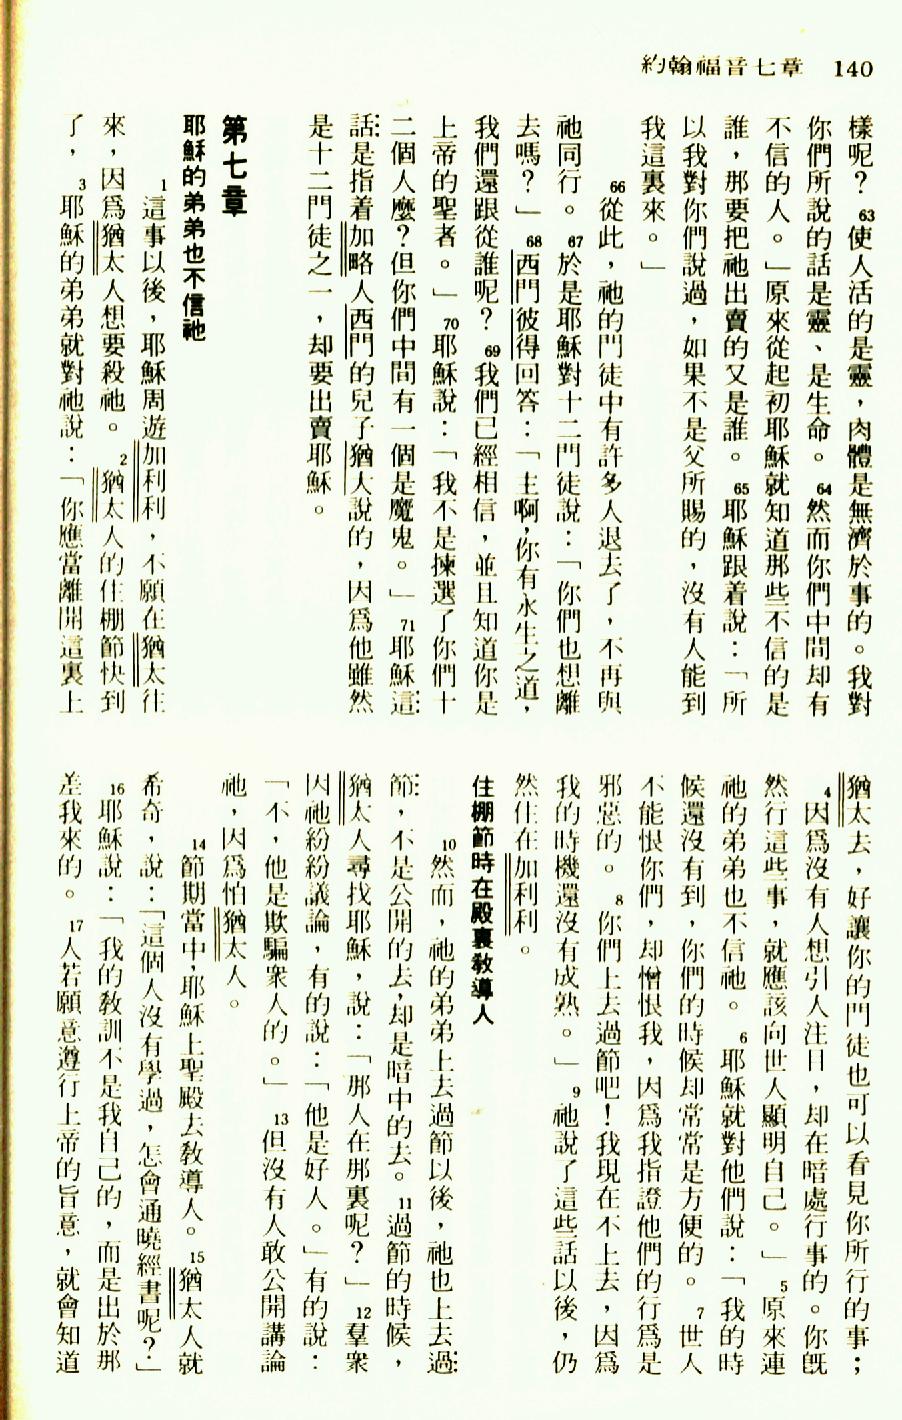 約翰福音七章　140
樣呢？63使人活的是靈，肉體是無濟於事的。我對
你們所說的話是靈、是生命。64然而你們中間却有
不信的人。」原來從起初耶穌就知道那些不信的是
誰，那要把祂出賣的又是誰。65耶穌跟着說：「所
以我對你們說過，如果不是父所賜的，沒有人能到
我這裏來。」
66從此，祂的門徒中有許多人退去了，不再與
祂同行。67於是耶穌對十二門徒說：「你們也想離
去嗎？」68西門彼得回答：「主啊，你有永生之道，
我們還跟從誰呢？69我們已經相信，並且知道你是
上帝的聖者。」70耶穌說：「我不是揀選了你們十
二個人麼？但你們中間有一個是魔鬼。」71耶穌這
話是指着加略人西門的兒子猶大說的，因爲他雖然
是十二門徒之一，却要出賣耶穌。
第七章
耶穌的弟弟也不信祂
1這事以後，耶穌周遊加利利，不願在猶太往
來，因爲猶太人想要殺祂。2猶太人的住棚節快到
了，3耶穌的弟弟就對祂說：「你應當離開這裏上
猶太去，好讓你的門徒也可以看見你所行的事；
4因爲沒有人想引人注目，却在暗處行事的。你旣
然行這些事，就應該向世人顯明自己。」5原來連
祂的弟弟也不信祂。6耶穌就對他們說：「我的時
候還沒有到，你們的時候却常常是方便的。7世人
不能恨你們，却憎恨我，因爲我指證他們的行爲是
邪惡的。8你們上去過節吧！我現在不上去，因爲
我的時機還沒有成熟。」9祂說了這些話以後，仍
然住在加利利。
住棚節時在殿裏敎導人
10然而，祂的弟弟上去過節以後，祂也上去過
節，不是公開的去，却是暗中的去。11過節的時候，
猶太人尋找耶穌，說：「那人在那裏呢？」12羣衆
因祂紛紛議論，有的說：「他是好人。」有的說：
「不，他是欺騙衆人的。」13但沒有人敢公開講論
祂，因爲怕猶太人。
14節期當中，耶穌上聖殿去敎導人。15猶太人就
希奇，說：「這個人沒有學過，怎會通曉經書呢？」
16耶穌說：「我的敎訓不是我自己的，而是出於那
差我來的。17人若願意遵行上帝的旨意，就會知道